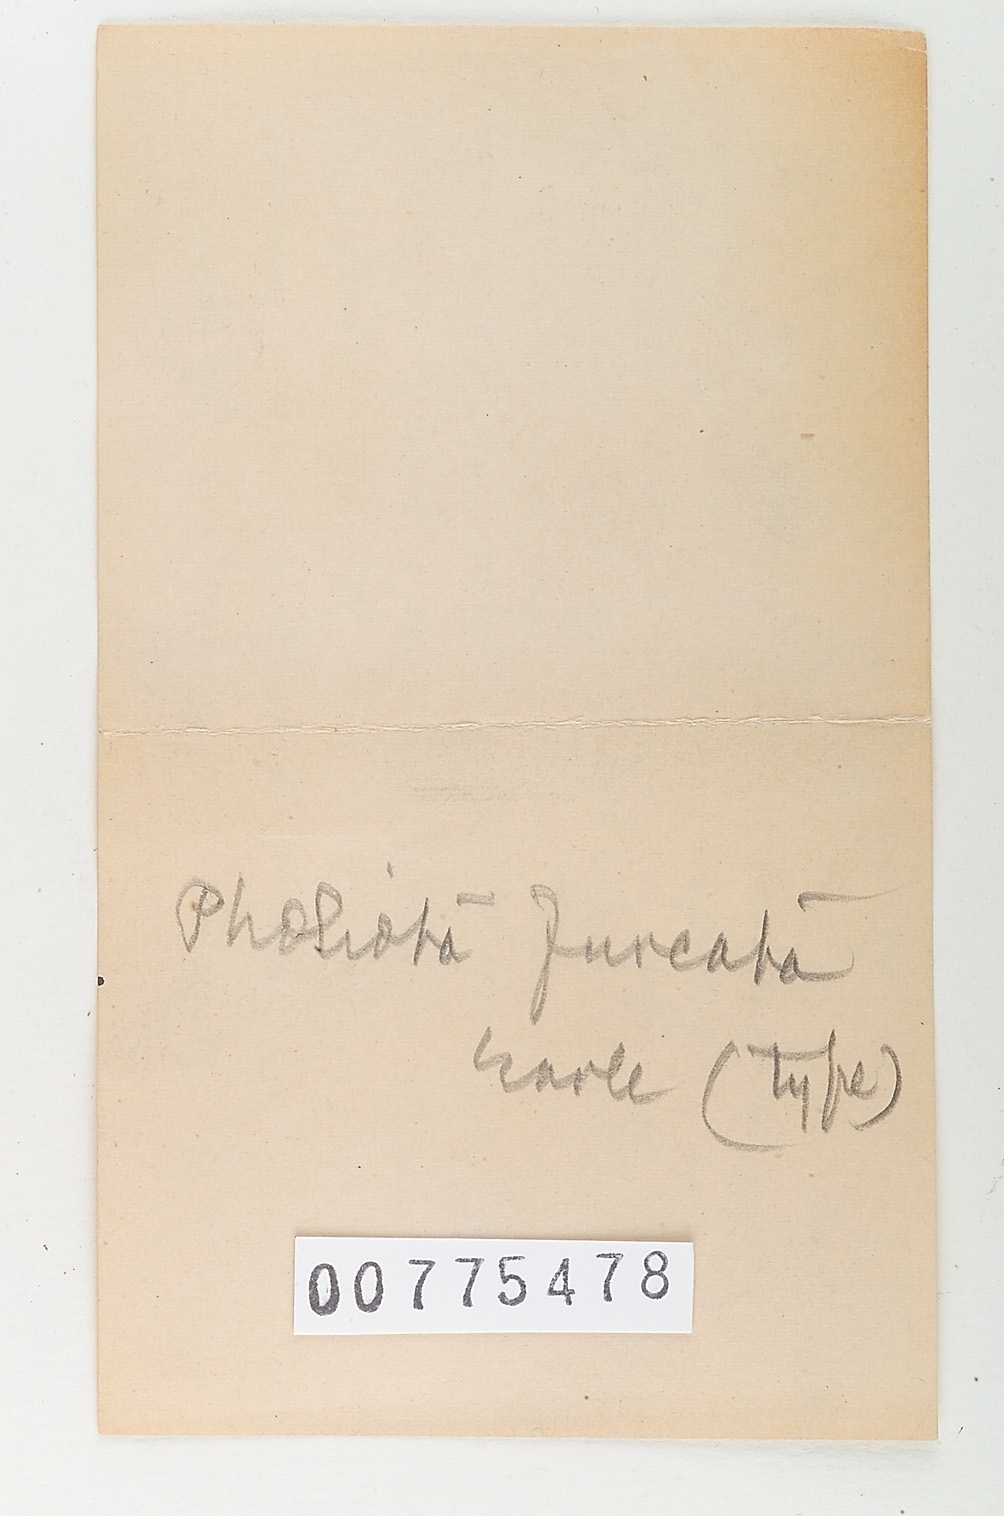 Pholiota furcata
Earle (Type)
00775478